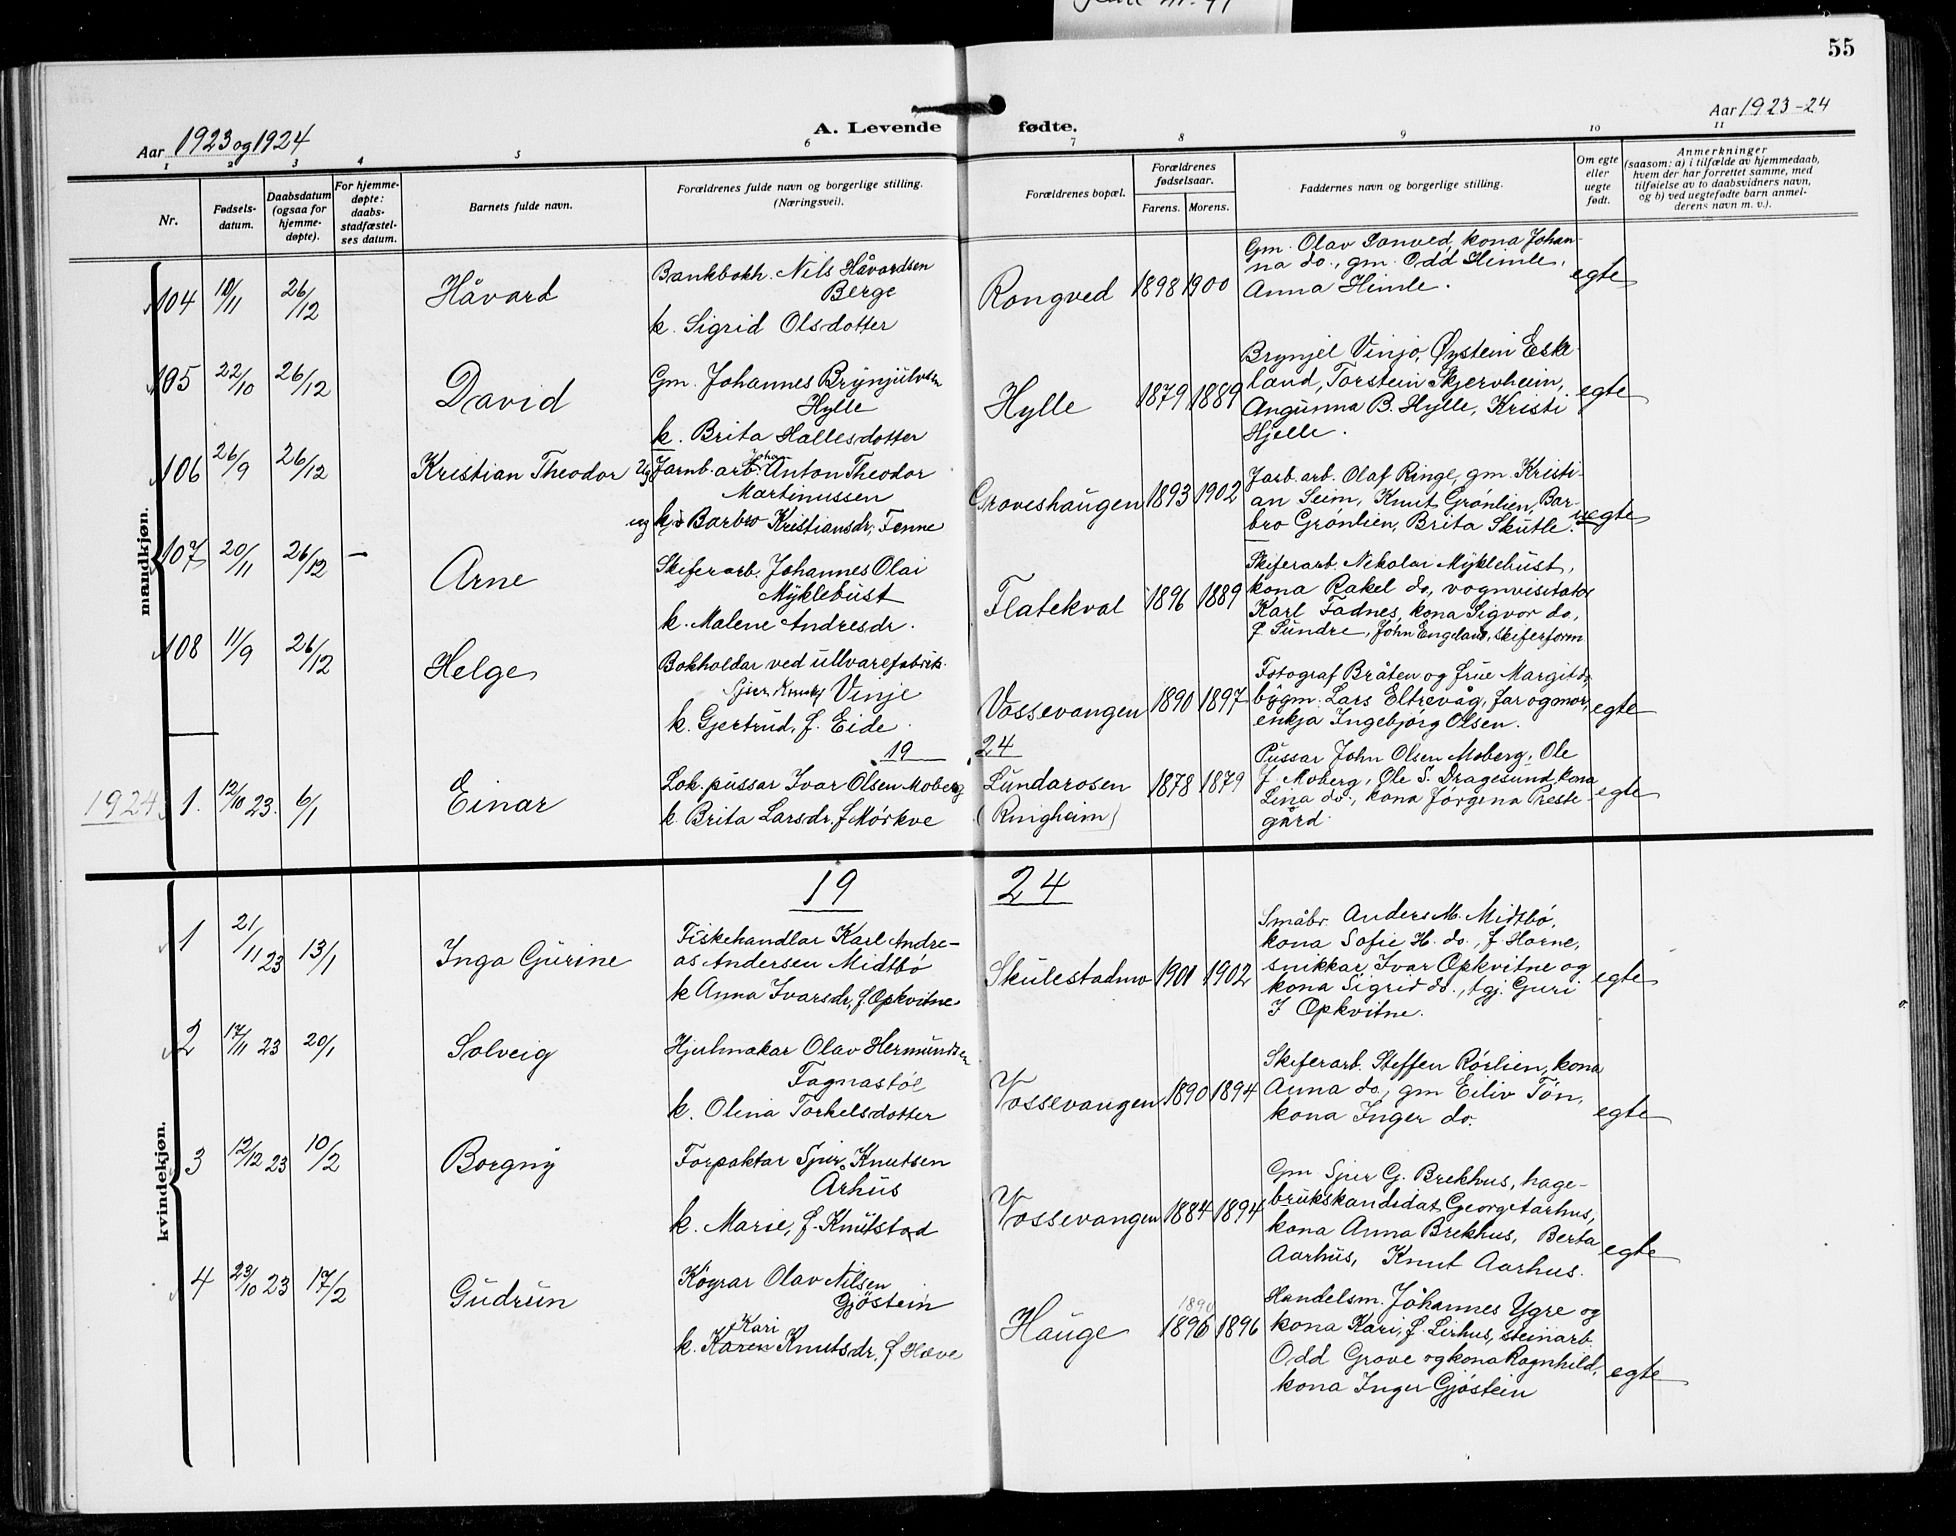 55
Aar 1923 og 1924
A. Levende fødte.
Aar 1923-24
1 2 3 4 5 6 7 8 9 10 11
Nr.
Fødsels-
datum.
Daabsdatum
(ogsaa for
hjemme-
døpte).
For hjemme-
døpte:
daabs-
stadfæstel-
ses datum.
Barnets fulde navn.
Forældrenes fulde navn og borgerlige stilling.
(Næringsvei).
Forældrenes bopæl.
Forældrenes
fødselsaar.
Farens. Morens.
Faddernes navn og borgerlige stilling.
Om egte
eller
uegte
født.
Anmerkninger
(saasom: a) i tilfælde av hjemmedaab,
hvem der har forrettet samme, med
tilføielse av to daabsvidners navn,
og b) ved uegtefødte barn anmel-
derens navn m. v.).
mandkjøn.
104 10/11 26/12 Håvard
Bankbokh. Nils Håvardsen
Berge
k. Sigrid Olsdotter
Rongved 1898 1900
Gm. Olav Sonved, kona Johan-
na do., gm. Odd Himle,
Anna Himle.
egte
105 22/10 26/12 David
Gm. Johannes Brynjulvsen
Hylle
k. Brita Hallesdotter
Hylle 1879 1889
Brynjel Vinjo, Øystein Eske-
land, Torstein Skjervheim,
Angunna B. Hylle, Kristi
Hjelle.
egte
106 26/9 26/12 Kristian Theodor
Ug Jarnb. arb. Joha Anton Theodor
Martinussen
ug k. Barbro Kristiansdr. Fenne
Groveshaugen 1893 1902
Jarb. arb. Olaf Ringe, gm. Kristi-
an Seim, Knut Grønlien, Bar-
bro Grønlien, Brita Skutle.
uegte
107 20/11 26/12 — Arne
Skiferarb. Johannes Olai
Myklebust
k. Malene Andresdr.
Flatekval 1896 1889
Skiferarb. Nikolai Myklebust,
kona Rakel do, vognvisitatør
Karl Fadnes, kona Sigvor do.,
f. Sundre, John Engeland, skiferform
108 11/9 26/12 Helge
Bokholdar ved ullvarefabrik
Sjur Knutss Vinje
k. Gjertrud, f. Eide.
Vossevangen 1890 1897
Fotograf Bråten og frue Margit do,
bygm. Lars Eltrevåg, far og mor,
enkja Ingebjørg Olsen.
egte
19 24
1924 1. 12/10 23. 6/1 Einar
Lok. pussar Ivar Olsen Moberg
k. Brita Larsdr. f Mørkve
Lundarosen
(Ringheim)
1878 1879
Pussar John Olsen Moberg, Ole
J. Moberg, Ole S. Dragesund, kona
Lina do., kona Jørgina Preste-
gård.
egte
19 24
kvindekjøn.
1 21/11 23 13/1 Inga Gurine
Fiskehandlar Karl Andre-
as Andersen Midtbø
k Anna Ivarsdr, f. Opkvitne.
Skulestadmo 1901 1902
Småbr. Anders M. Midtbø,
kona Sofie H. do., f. Horne,
snikkar Ivar Opkvitne og
kona Sigrid do., tgj. Guri
I Opkvitne.
egte
2 17/11 23 20/1 Solveig
Hjulmakar Olav Hermundsen
Fagnastøl
k. Olina Torkelsdotter
Vossevangen 1890 1894
Skiferarb. Steffen Røilien, kona
Anna do., gm Eiliv Tøn,
kona Inger do.
egte
3 12/12 23 10/2 Borgny
Forpaktar Sjur Knutsen
Århus
k. Marie, f. Knutstad
Vossevangen 1884 1894
Gm. Sjur G. Brekhus, hage-
brukskandidat Georg Aarhus,
kona Anna Brekhus, Berta
Aarhus, Knut Aarhus.
egte
4 23/10 23 17/2 Gudrun
Køyrar Olav Nilsen
Gjøstein
Kari
k. Karen Knutsdr. f Hæve
Hauge 1890 1896 1896
Handelsm. Johannes Ygre og
kona Kari, f. Lirhus, steinarb.
Odd Grove og kona Ragnhild,
kona Inger Gjøstein
egte